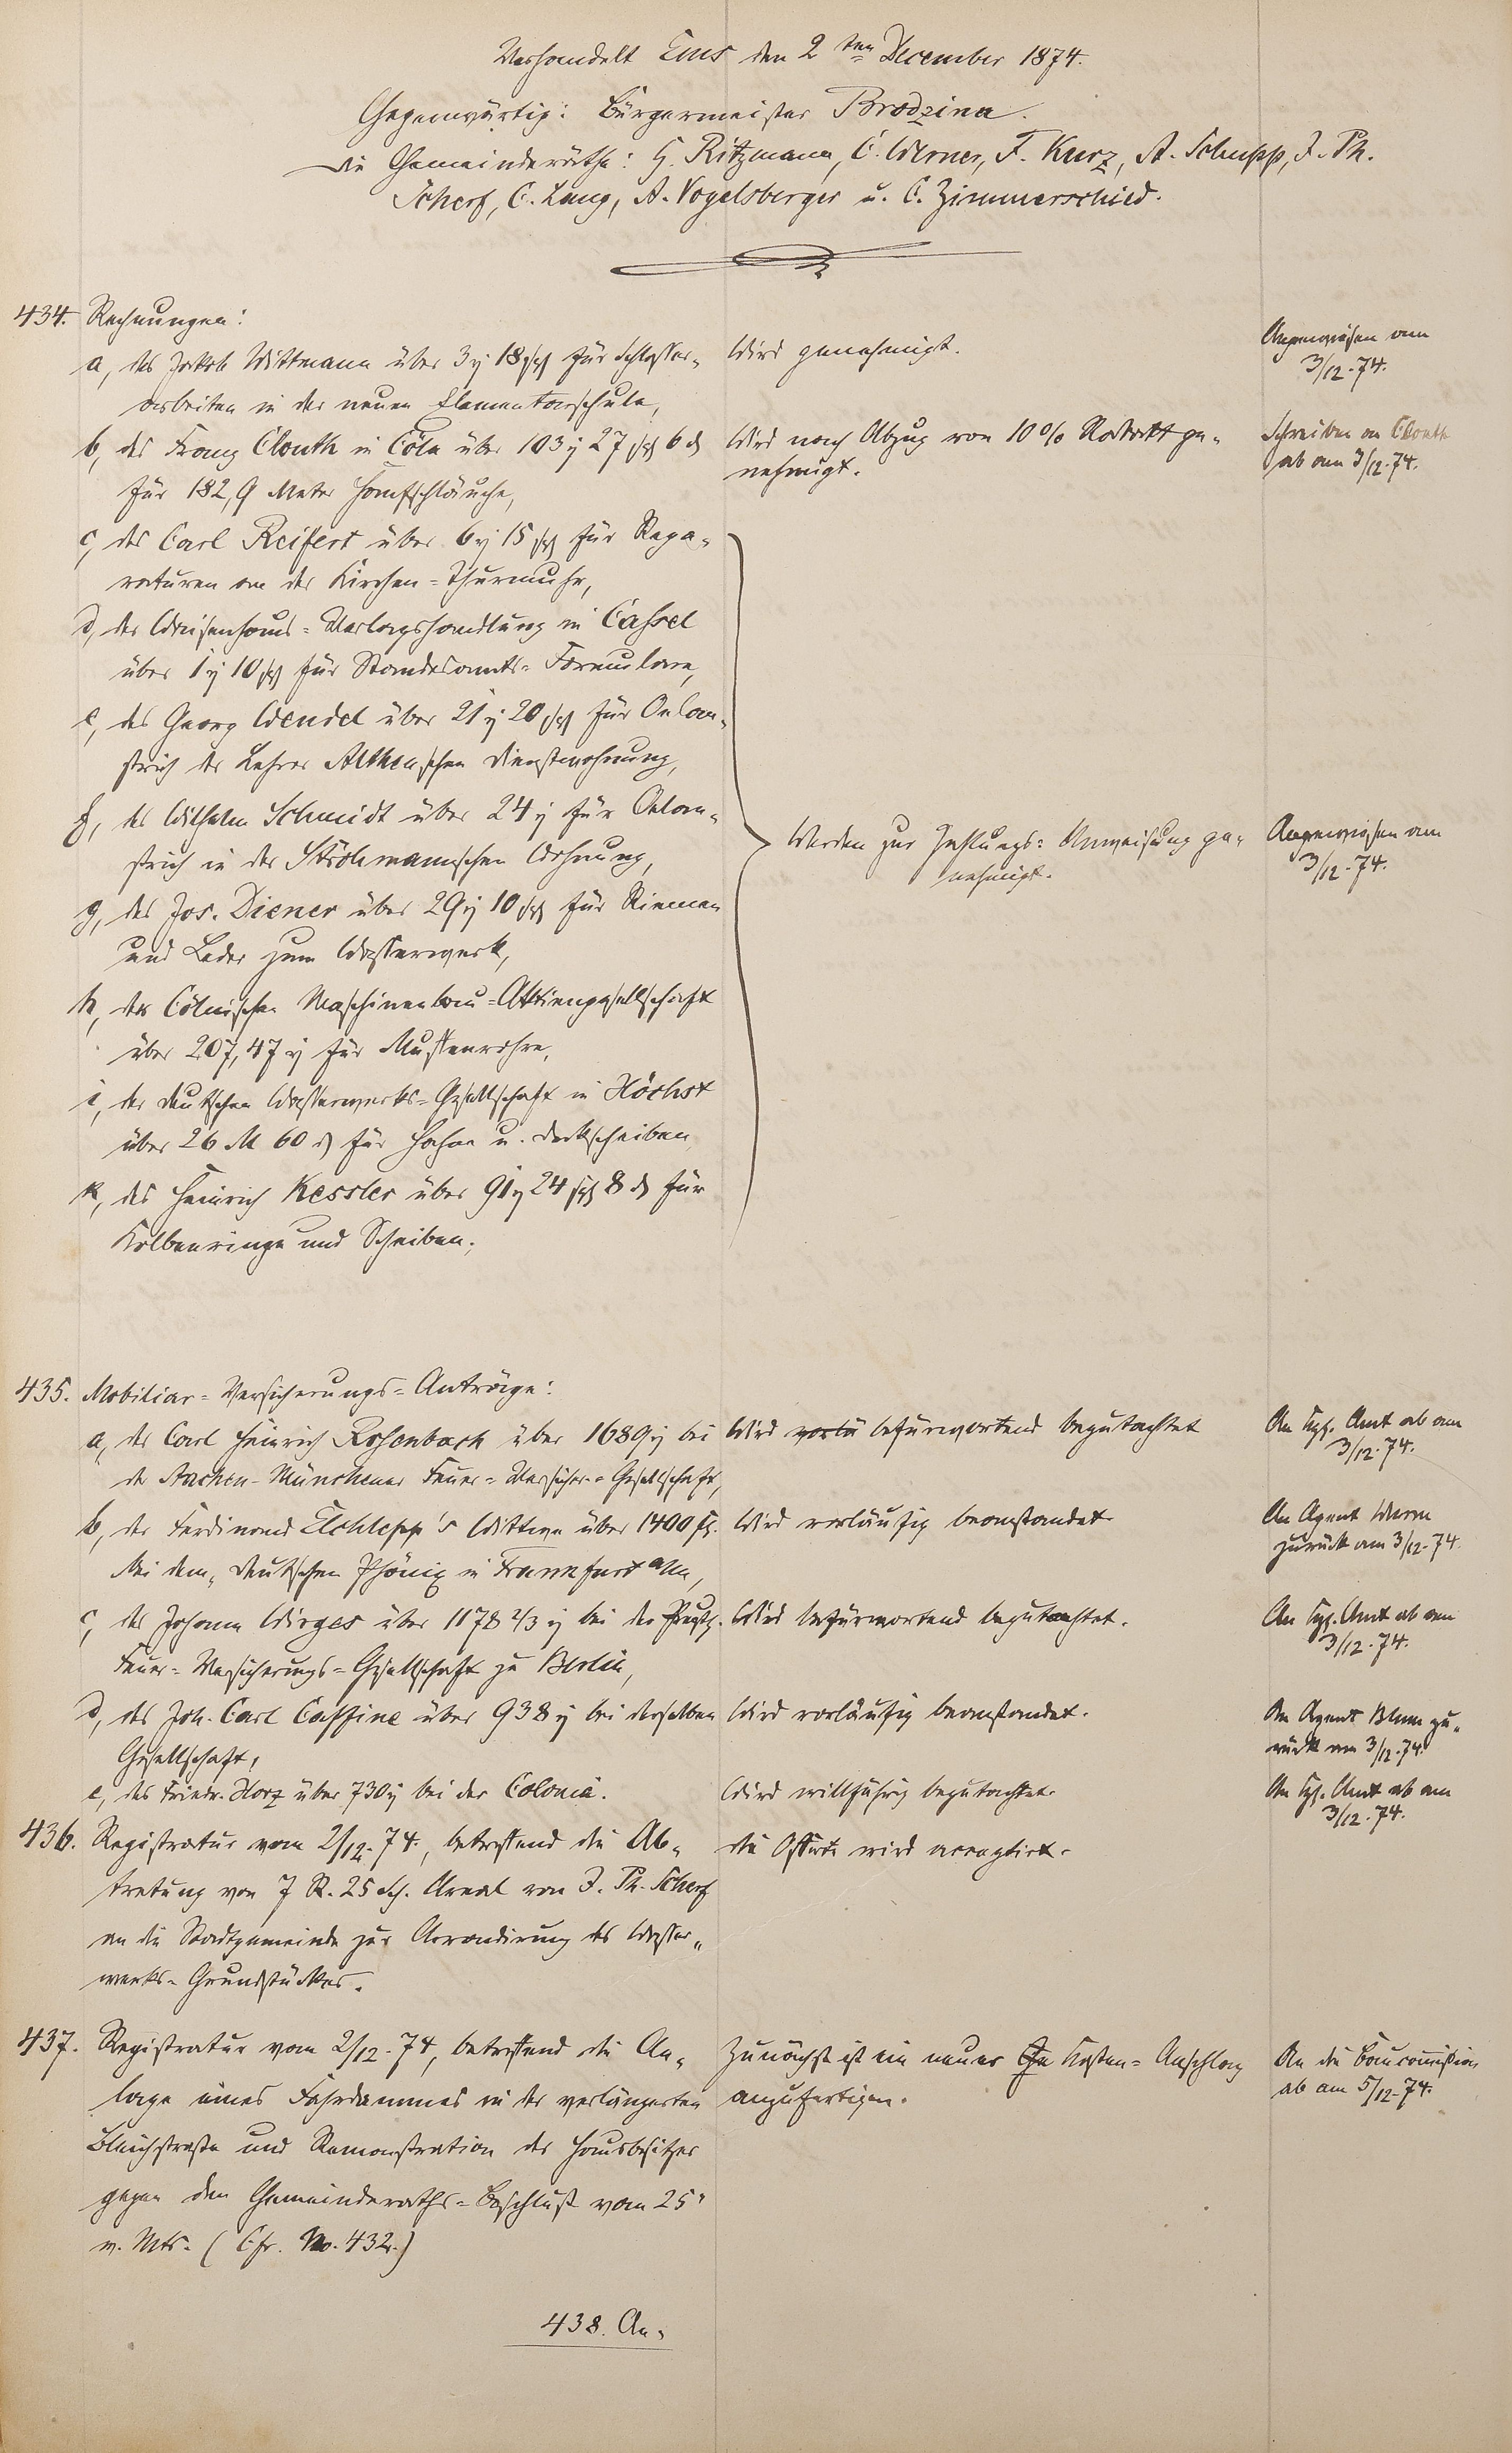 Verhandelt Ems den 2ten December 1874.
Gegenwärtig: Bürgermeister Brodzina.
Die Gemeinderäthe: H. Ritzmann, C. Werner, F. Kurz, A. Schupp, J. Ph.
Scherf, C. Lang, A. Vogelsberger u. C. Zimmerschied.
434. Rechnungen:
a, des Jakob Wittmann über 3 18 für Schlosser-
arbeiten in der neuen Elementarschule,
Wird genehmigt.
Angewiesen am
3/12. 74.
b, des Franz Clouth in Cöln über 103 27 6
für 182,9 Meter Hanfschläuche,
Wird nach Abzug von 10% Rabatt ge-
nehmigt.
Schreiben an Clouth
ab am 3/12. 74.
c, des Carl Reifert über 6 15 für Repa-
raturen an der Kirchen-Thurmuhr,
d, der Waisenhaus-Verlagshandlung in Cassel
über 1 10 für Standesamts-Formulare,
e, des Georg Wendel über 21 20 für Oelan-
strich der Lehrer Althen'schen Dienstwohnung,
f, des Wilhelm Schmidt über 24 für Oelan-
strich in der Ströhmannschen Wohnung,
g, des Jos. Diener über 29 10 für Riemen
und Leder zum Wasserwerk,
h, der Cölnischen Maschinenbau-Aktiengesellschaft
über 207,47 für Muffenrohre,
i, der deutschen Wasserwerks-Gesellschaft in Höchst
über 26 M 60 für Hahne u. Deckscheiben
k, des Heinrich Kessler über 91 24 8 für
Kolbenringe und Scheiben.
Werden zur Zahlungs-Anweisung ge-
nehmigt.
Angewiesen am
3/12. 74.
435. Mobiliar-Versicherungs-Anträge:
a, des Carl Heinrich Rosenbach über 1689 bei
der Aachen-Münchener Feuer-Versicher.-Gesellschaft,
Wird vorlä befürwortend begutachtet
An Kgl. Amt ab am
3/12. 74.
b, der Ferdinand Wittwe über 1400 fl.
bei dem deutschen Phönix in Frankfurt a/M,
Wird vorläufig beanstandet
An Agent
zurück am 3/12. 74.
c, des Johann Wirges über 1178 2/3 bei der Preuß.
Feuer-Versicherungs-Gesellschaft zu Berlin,
Wird befürwortend begutachtet.
An Kgl. Amt ab am
3/12. 74.
d, des Joh. Carl Caffine über 938 bei derselben
Gesellschaft,
Wird vorläufig beanstandet.
An Agent Blum zu-
rück am 3/12. 74.
e, des Friedr. Horz über 730 bei der Colonia.
Wird willfährig begutachtet.
An Kgl. Amt ab am
3/12. 74.
436. Registratur vom 2/12. 74., betreffend die Ab-
tretung von 7 R. 25 Sch. Areal von J. Ph. Scherf
an die Stadtgemeinde zur Arrondirung des Wasser-
werks-Grundstückes.
die Offerte wird acceptirt.
437. Registratur vom 2/12. 74, betreffend die An-
lage eines Fahrdammes in der verlängerten
Bleichstraße und Remonstration der Hausbesitzer
gegen den Gemeinderaths-Beschluß vom 25"
v. Mts. (Cfr. No. 432.)
Zunächst ist ein neuer Kosten-Anschlag
anzufertigen.
An die Baucommission
ab am 5/12. 74.
438. An-